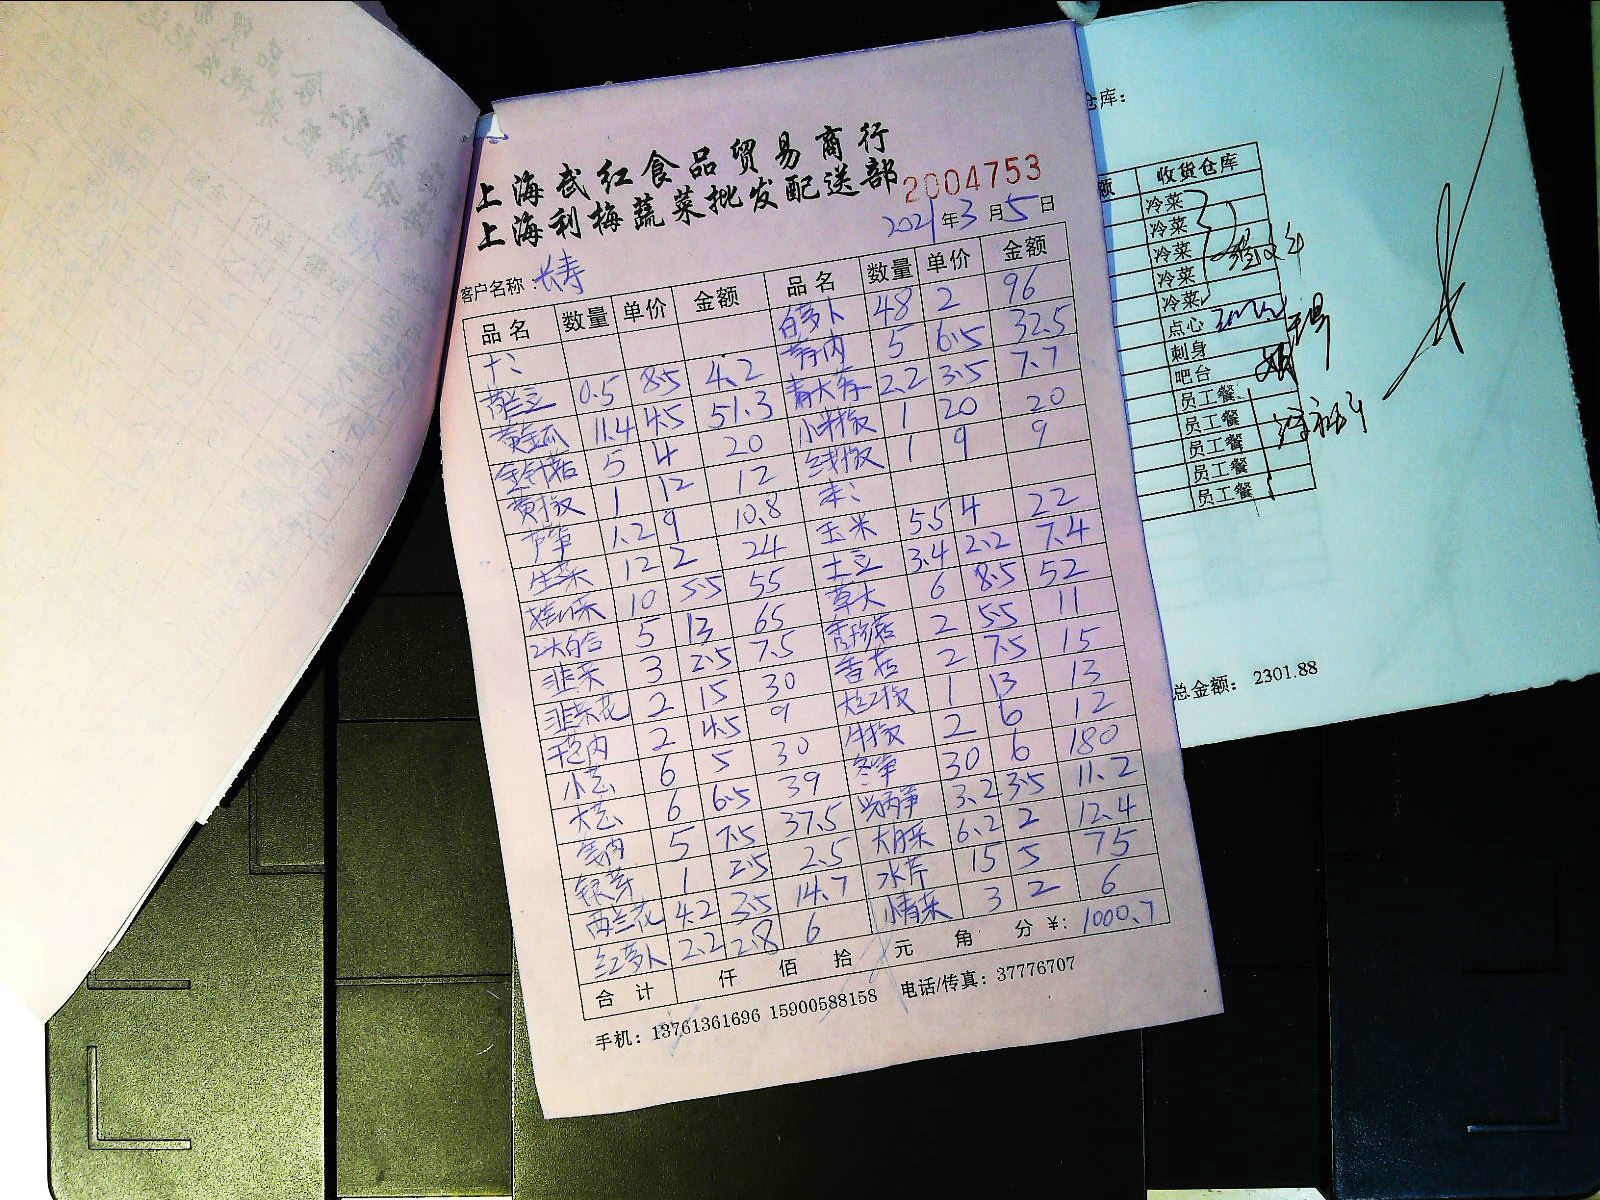 上海武红食品贸易商行
上海利梅蔬菜批发配送部
2004753
2021年3月5日
客户名称：长寿
品名 数量 单价 金额 品名 数量 单价 金额
白萝卜 48 2 96
5 6.5 32.5
0.5 8.5 4.2 2.2 3.5 7.7
黄金瓜 11.4 4.5 51.3 小米椒 1 20 20
金针菇 5 4 20 线椒 1 9 9
黄椒 1 12 12
芦笋 1.2 9 10.8 玉米 5.5 4 22
生菜 12 2 24 土豆 3.4 2.2 7.4
娃娃菜 10 5.5 55 草头 6 8.5 52
2头百合 5 13 65 秀珍菇 2 5.5 11
韭菜 3 2.5 7.5 香菇 2 7.5 15
韭菜花 2 15 30 1 13 13
2 4.5 9 牛椒 2 6 12
小芒 6 5 30 冬笋 30 6 180
大芒 6 6.5 39 莴笋 3.2 3.5 11.2
5 7.5 37.5 6.2 2 12.4
银芽 1 2.5 2.5 水芹 15 5 75
西兰花 4.2 3.5 14.7 小青菜 3 2 6
红萝卜 2.2 2.8 6
合计 仟 佰 拾 元 角 分 ¥: 1000.7
手机：13761361696 15900588158 电话/传真：37776707
仓库：
额 收货仓库
冷菜
冷菜
冷菜
冷菜
冷菜
点心
刺身
吧台
员工餐
员工餐
员工餐
员工餐
员工餐
总金额： 2301.88